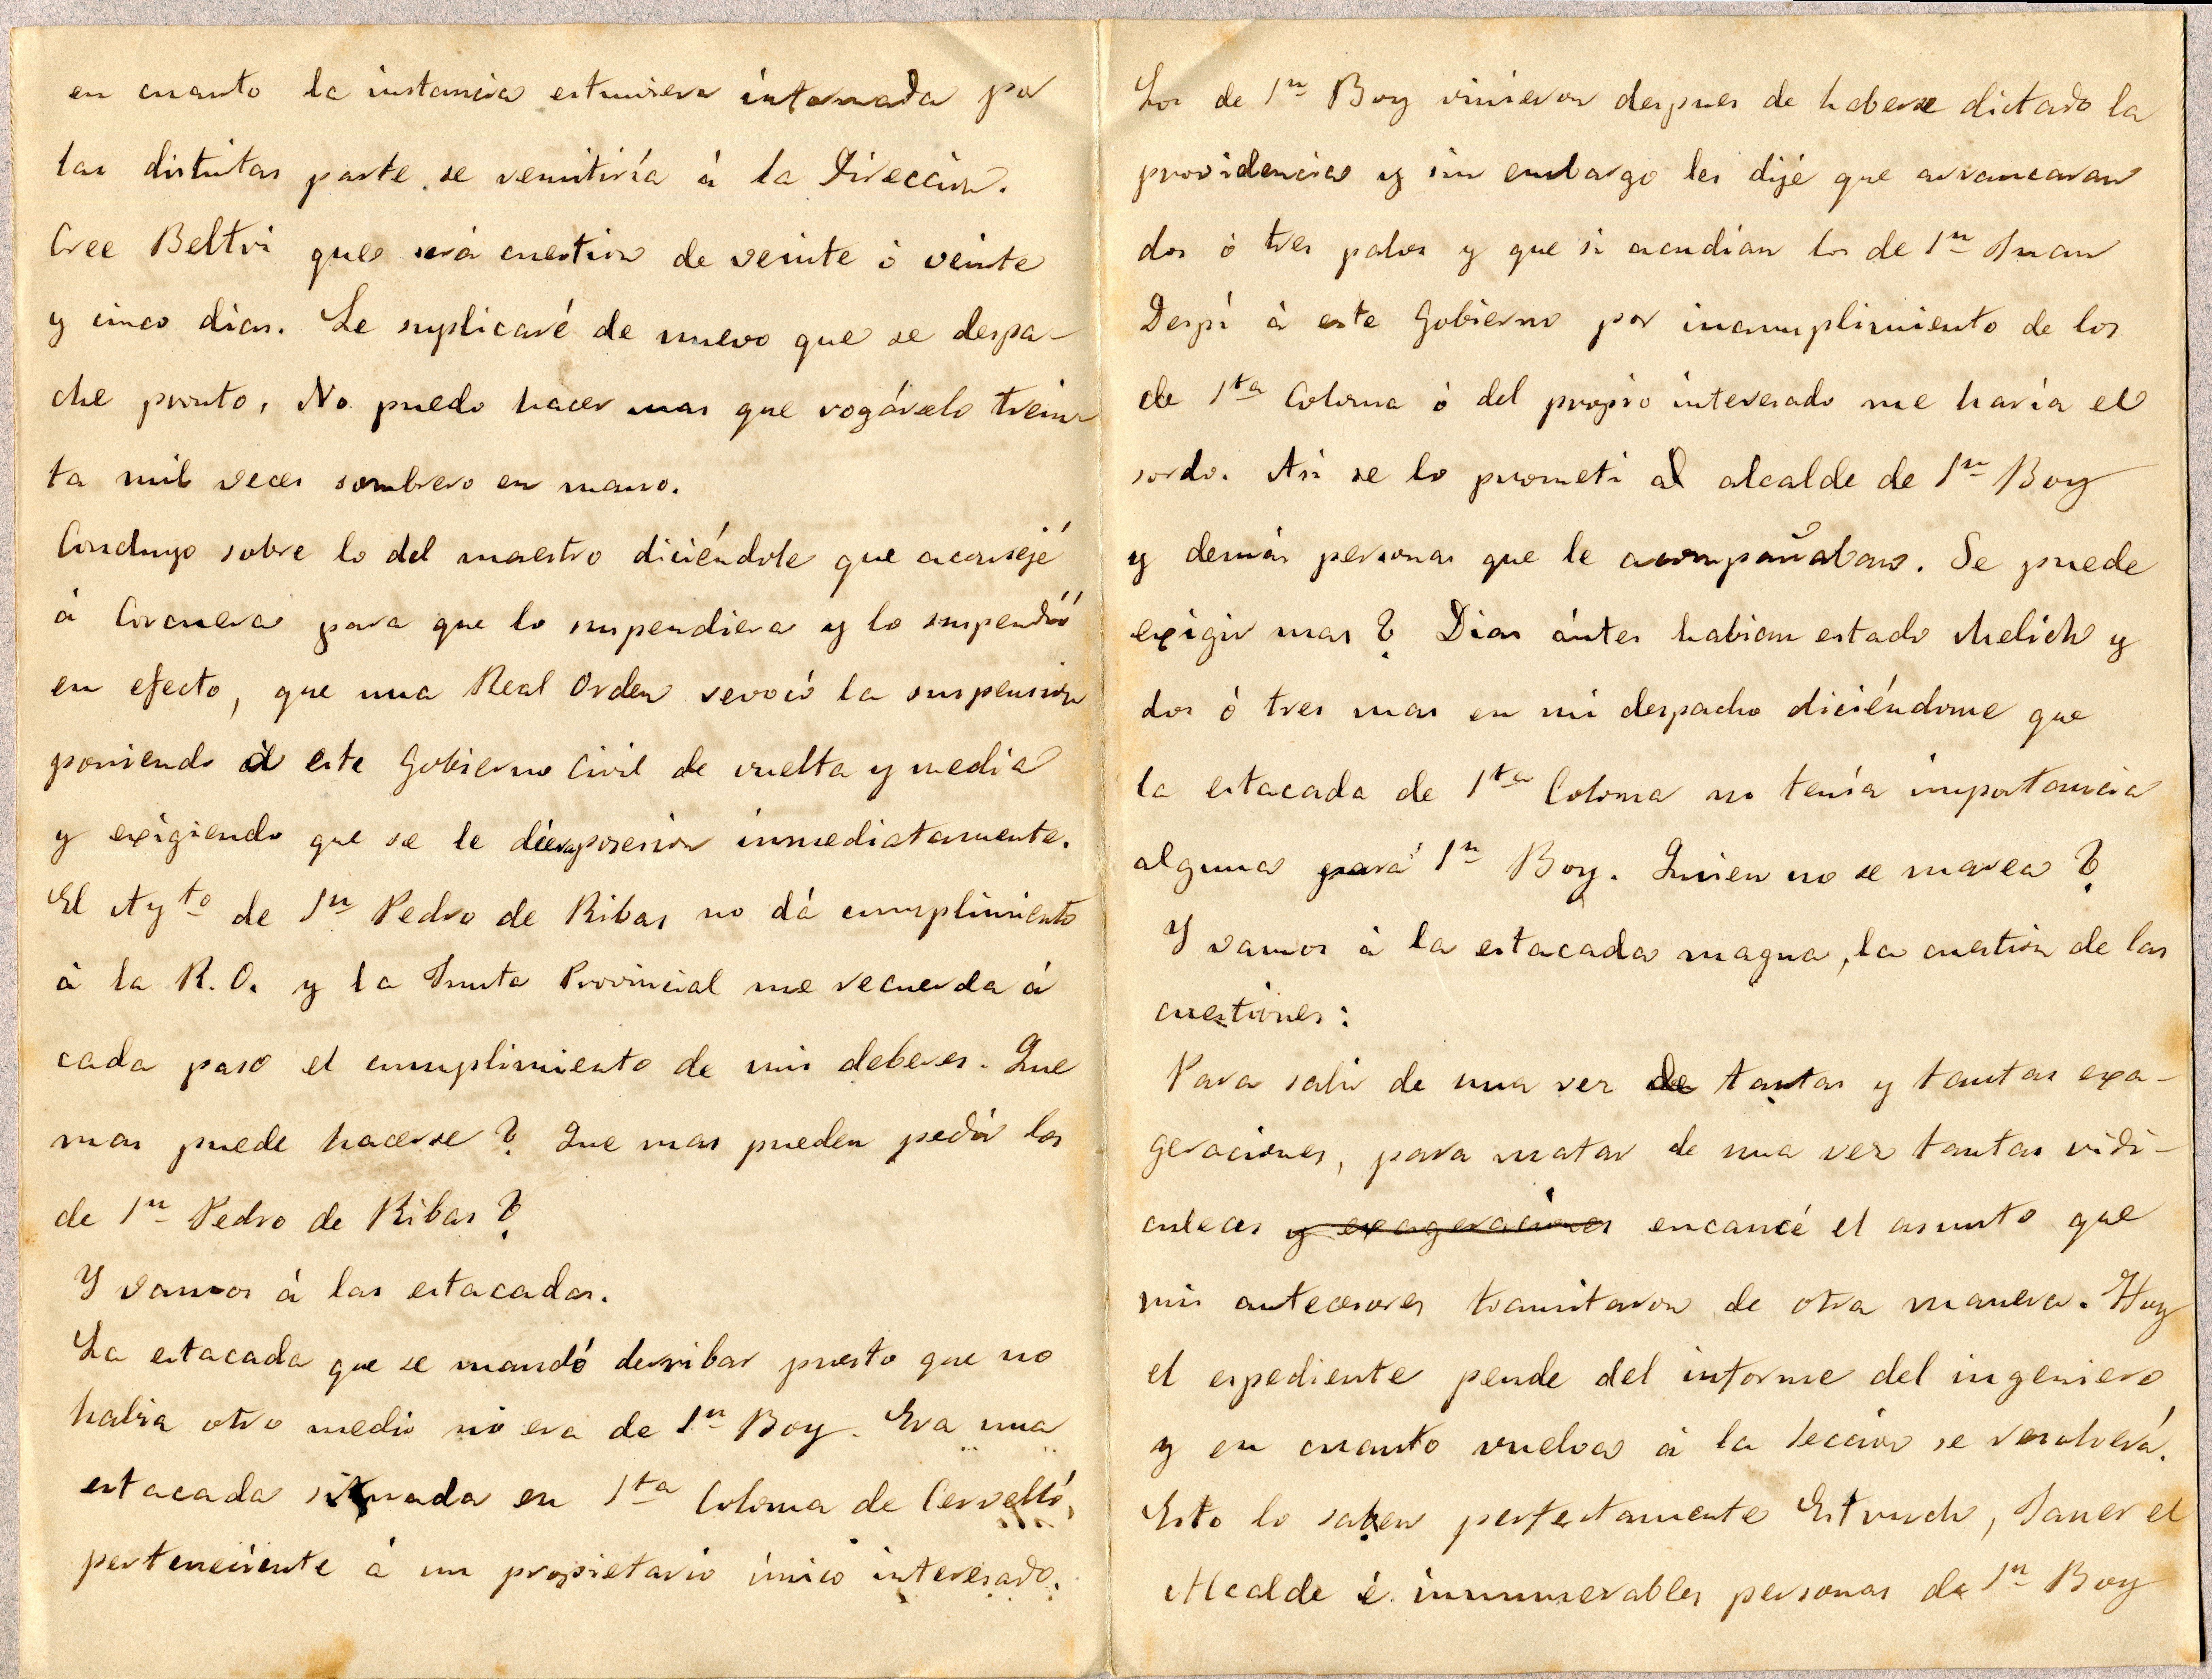 en cuanto la instancia estuviera informada por
las distintas parte se remitiría á la Dirección.
Cree Beltri que será cuestion de veinte ó veinte
y cinco dias. Le suplicaré de nuevo que se despa-
che pronto. No puedo hacer mas que rogárselo trein-
ta mil veces sombrero en mano.
Concluyo sobre lo del maestro diciéndote que aconsejé
á Corcuera para que lo suspendiera y lo suspendió
en efecto, que una Real Orden revocó la suspension
poniendo á este Gobierno Civil de vuelta y media
y exigiendo que se le diera posesion inmediatamente.
El Ayto de Sn Pedro de Ribas no dá cumplimiento
á la R. O. y la Junta Provincial me recuerda á
cada paso el cumplimiento de mis deberes. Que
mas puede hacerse? Que mas pueden pedir los
de Sn Pedro de Ribas?
Y vamos á las estacadas.
La estacada que se mandó derribar puesto que no
habia otro medio no era de Sn Boy. Era una
estacada situada en Sta Coloma de Cervelló,
perteneciente á un propietario único interesado.
Los de Sn Boy vinieron despues de haberse dictado la
providencia y sin embargo les dije que arrancaran
dos ó tres palos y que si acudían los de Sn Juan
Despí á este Gobierno por incumplimiento de los
de Sta Coloma ó del propio interesado me haría el
sordo. Asi se lo prometi al alcalde de Sn Boy
y demás personas que le acompañaban. Se puede
exigir mas? Dias ántes habian estado Melich y
dos ó tres mas en mi despacho diciéndome que
la estacada de Sta Coloma no tenía importancia
alguna para Sn Boy. Quien no se marea?
Y vamos á la estacada magna, la cuestion de las
cuestiones:
Para salir de una vez de tantas y tantas exa-
geraciones, para matar de una vez tantas ridi-
culeces y exageraciones encaucé el asunto que
mis antecesores tramitaron de otra manera. Hoy
el espediente pende del informe del ingeniero
y en cuanto vuelva á la Seccion se resolverá.
Esto lo saben perfectamente Estruch, Janer el
Alcalde é innumerables personas de Sn Boy